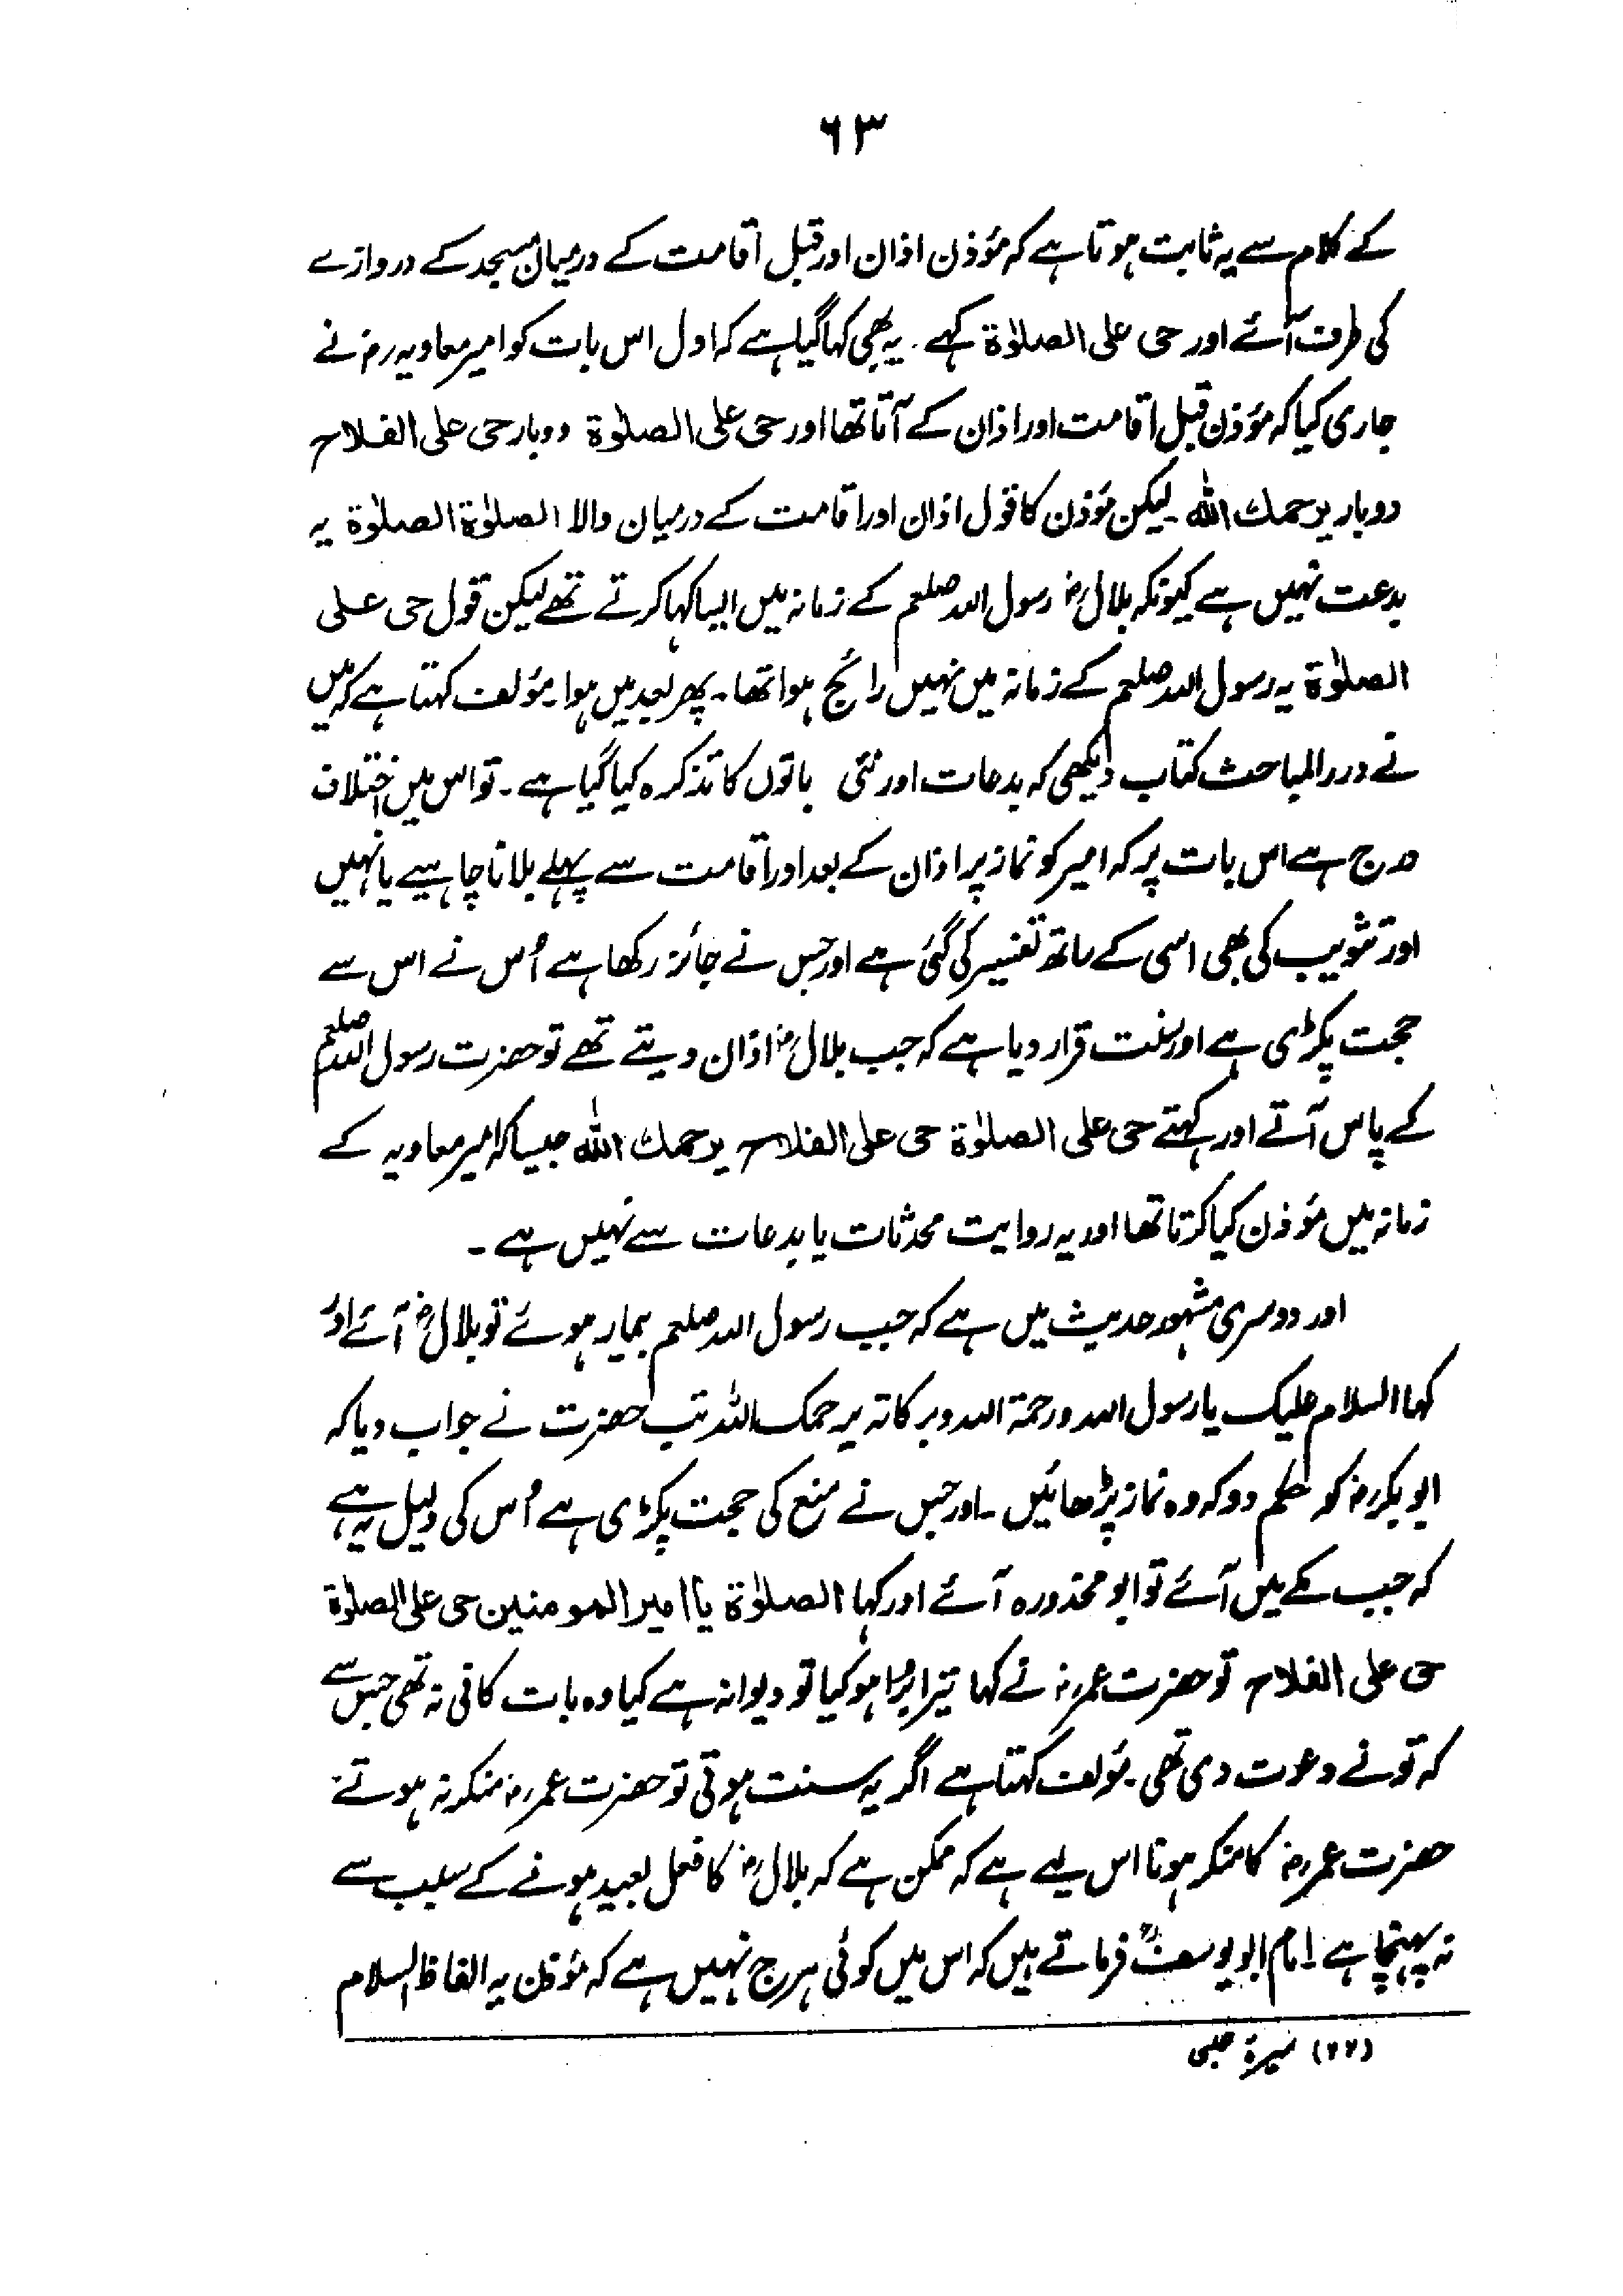 ۶۳
کے کلام سے یہ ثابت ہوتا ہے کہ مؤذن اذان اور قبل اقامت کے درمیان مسجد کے دروازے
کی طرف آئے اور حی علی الصلوٰۃ کہے۔ یہ بھی کہا گیا ہے کہ اول اس بات کو امیر معاویہ رض نے
جاری کیا کہ مؤذن قبل اقامت اور اذان کے آتا تھا اور حی علی الصلوٰۃ دوبار حی علی الفلاح
دوبار یرحمک اللہ۔ لیکن مؤذن کا قول اذان اور اقامت کے درمیان والا الصلوٰۃ الصلوٰۃ یہ
بدعت نہیں ہے کیونکہ بلال رض رسول اللہ صلعم کے زمانہ میں ایسا کہا کرتے تھے لیکن قول حی علی
الصلوٰۃ یہ رسول اللہ صلعم کے زمانہ میں نہیں رائج ہوا تھا۔ پھر بعد میں ہوا۔ مؤلف کہتا ہے کہ میں
نے درر المباحث کتاب دیکھی کہ بدعات اور نئی باتوں کا تذکرہ کیا گیا ہے۔ تو اس میں اختلاف
درج ہے اس بات پر کہ امیر کو نماز پر اذان کے بعد اور اقامت سے پہلے بلانا چاہیے یا نہیں
اور تثویب کی بھی اسی کے ساتھ تفسیر کی گئی ہے اور جس نے جائز رکھا ہے اُس نے اس سے
حجت پکڑی ہے اور سنت قرار دیا ہے کہ جب بلال رض اذان دیتے تھے تو حضرت رسول اللہ صلعم
کے پاس آتے اور کہتے حی علی الصلوٰۃ حی علی الفلاح یرحمک اللہ جیسا کہ امیر معاویہ کے
زمانہ میں مؤذن کیا کرتا تھا اور یہ روایت محدثات یا بدعات سے نہیں ہے۔
اور دوسری مشہور حدیث میں ہے کہ جب رسول اللہ صلعم بیمار ہوئے تو بلال رض آئے اور
کہا السلام علیک یا رسول اللہ ورحمۃ اللہ وبرکاتہ یرحمک اللہ تب حضرت نے جواب دیا کہ
ابوبکر رض کو حکم دو کہ وہ نماز پڑھائیں۔ اور جس نے منع کی حجت پکڑی ہے اُس کی دلیل یہ ہے
کہ جب مکے میں آئے تو ابو محذورہ آئے اور کہا الصلوٰۃ یا امیر المومنین حی علی الصلوٰۃ
حی علی الفلاح تو حضرت عمر رض نے کہا تیرا بُرا ہو کیا تو دیوانہ ہے کیا وہ بات کافی نہ تھی جس سے
کہ تو نے دعوت دی تھی۔ مؤلف کہتا ہے اگر یہ سنت ہوتی تو حضرت عمر رض منکر نہ ہوتے
حضرت عمر رض کا منکر ہونا اس لیے ہے کہ ممکن ہے کہ بلال رض کا فعل بعید ہونے کے سبب سے
نہ پہنچا ہے۔ امام ابو یوسفؒ فرماتے ہیں کہ اس میں کوئی ہرج نہیں ہے کہ مؤذن یہ الفاظ السلام
(۲۲) سیرۃ حلبی